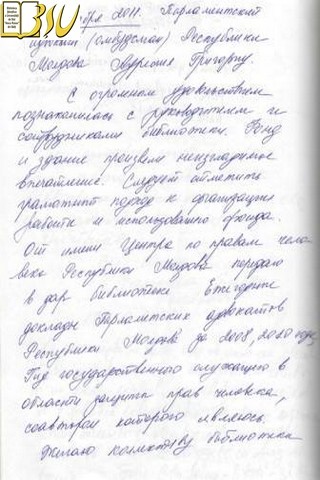 BSU
ября 2011. Парламентский
адвокат (омбудсман) Республики
Молдова Аурелия Григориу.
С огромным удовольствием
познакомилась с руководителем и
сотрудниками библиотеки. Фонд
и здание произвели неизгладимое
впечатление. Следует отметить
грамотный подход к организации
работы и использованию фонда.
От имени Центра по правам чело-
века Республики Молдова передаю
в дар библиотеке Ежегодные
доклады Парламентских адвокатов
Республики Молдова за 2008, 2010 годы,
Гид государственного служащего в
области защиты прав человека,
соавтором которого являюсь.
Желаю коллективу библиотеки